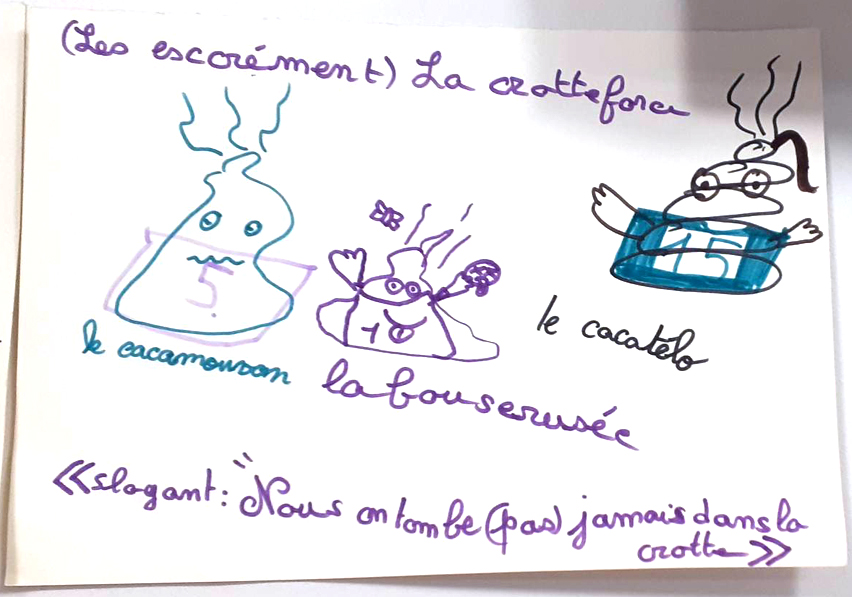 (Les escorément) La crotteforce
5
le cacamouson
10
la bouserusée
15
le cacatélo
<<slogant: "Nous on tombe (pas) jamais dans la
crotte>>